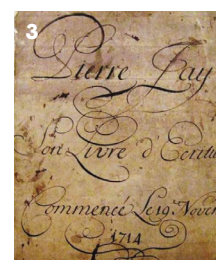 3
Pierre Jay
Son Livre d'Ecritu
Commencé Le 19e Novem
1714